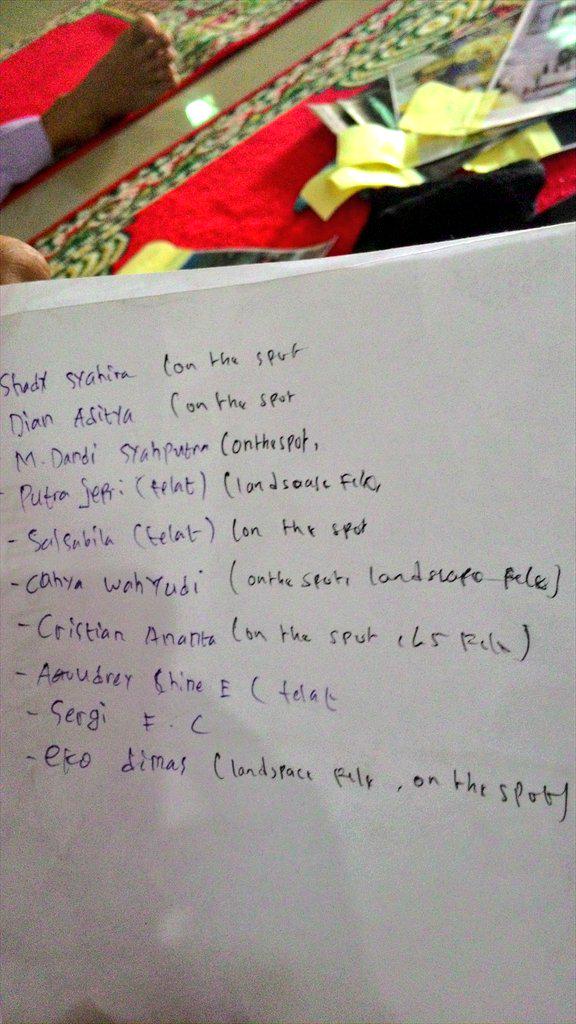 Shady Syahira (on the spot
Dian Aditya (on the spot
M. Dandi Syahputra (onthespot,
- Putra Jefri (telat) (landscape
- Salsabila (telat) (on the spot
- Cahya wahyudi (onthe spot, landscape
- Cristian Ananta (on the spot, LS
- Shine E ( telat
- Sergi F. C
- eko dimas (landspace , on the spot)